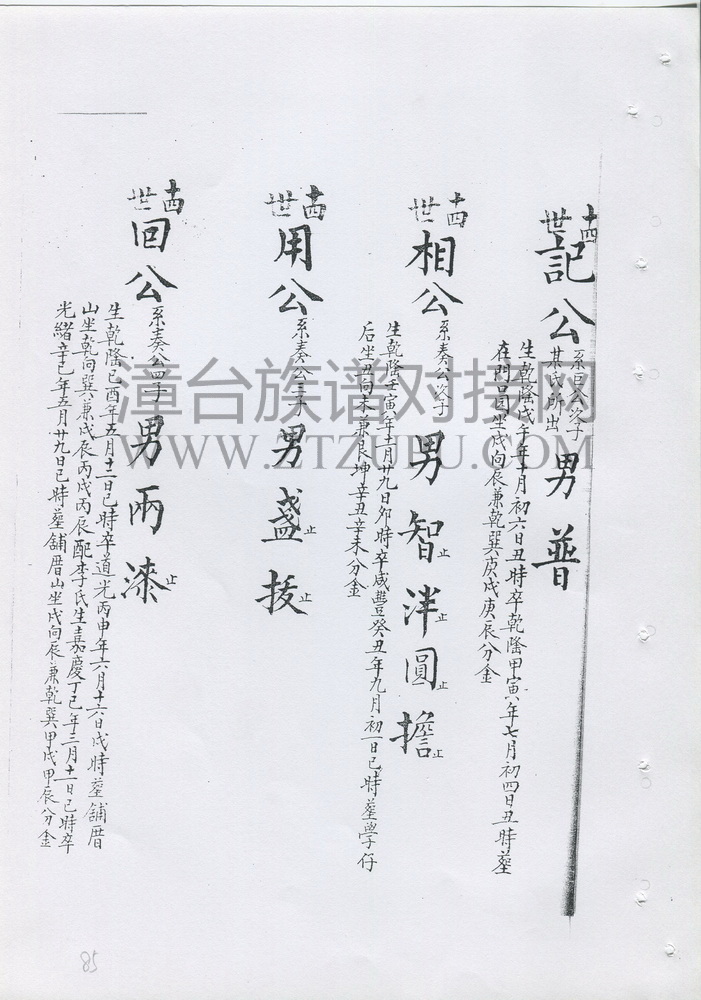 十四世
記公
系回公次子
某氏所出
男普
生乾隆戊午年十月初六日丑時卒乾隆甲寅年七月初四日丑時墓
在門口園坐戌向辰兼乾巽庚戌庚辰分金
十四世
相公
系奏公次子
男智止泮止圓止擔止
生乾隆壬寅年十一月廿九日卯時卒咸豐癸丑年九月初一日巳時墓學仔
后坐丑向未兼艮坤辛丑辛未分金
十四世
用公
系奏公三子
男盞止拔止
十四世
回公
系奏公四子
男兩漆止
生乾隆己酉年五月十二日巳時卒道光丙申年六月十六日戌時墓舖厝
山坐乾向巽兼戌辰丙戌丙辰配李氏生嘉慶丁巳年三月十一日巳時卒
光緒辛巳年五月廿九日巳時墓舖厝山坐戌向辰兼乾巽甲戌甲辰分金
漳台族谱对接网
WWW.ZTZUPU.COM
85